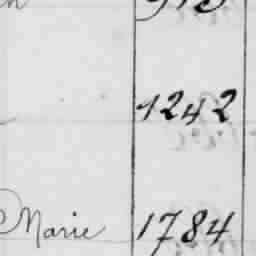 1242
Marie 1784